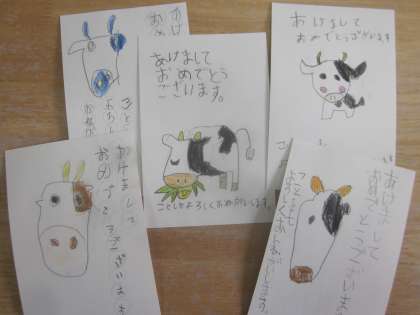 あけ
おめ
ことし
よろし
おねが
あけまして
おめでとう
ございます。
ことしもよろしくおねがいします。
あけまして
おめでとうございます
あけまして
おめでとうございます
あけまして
おめでとうございます
ことしも
よろしくおねがいします